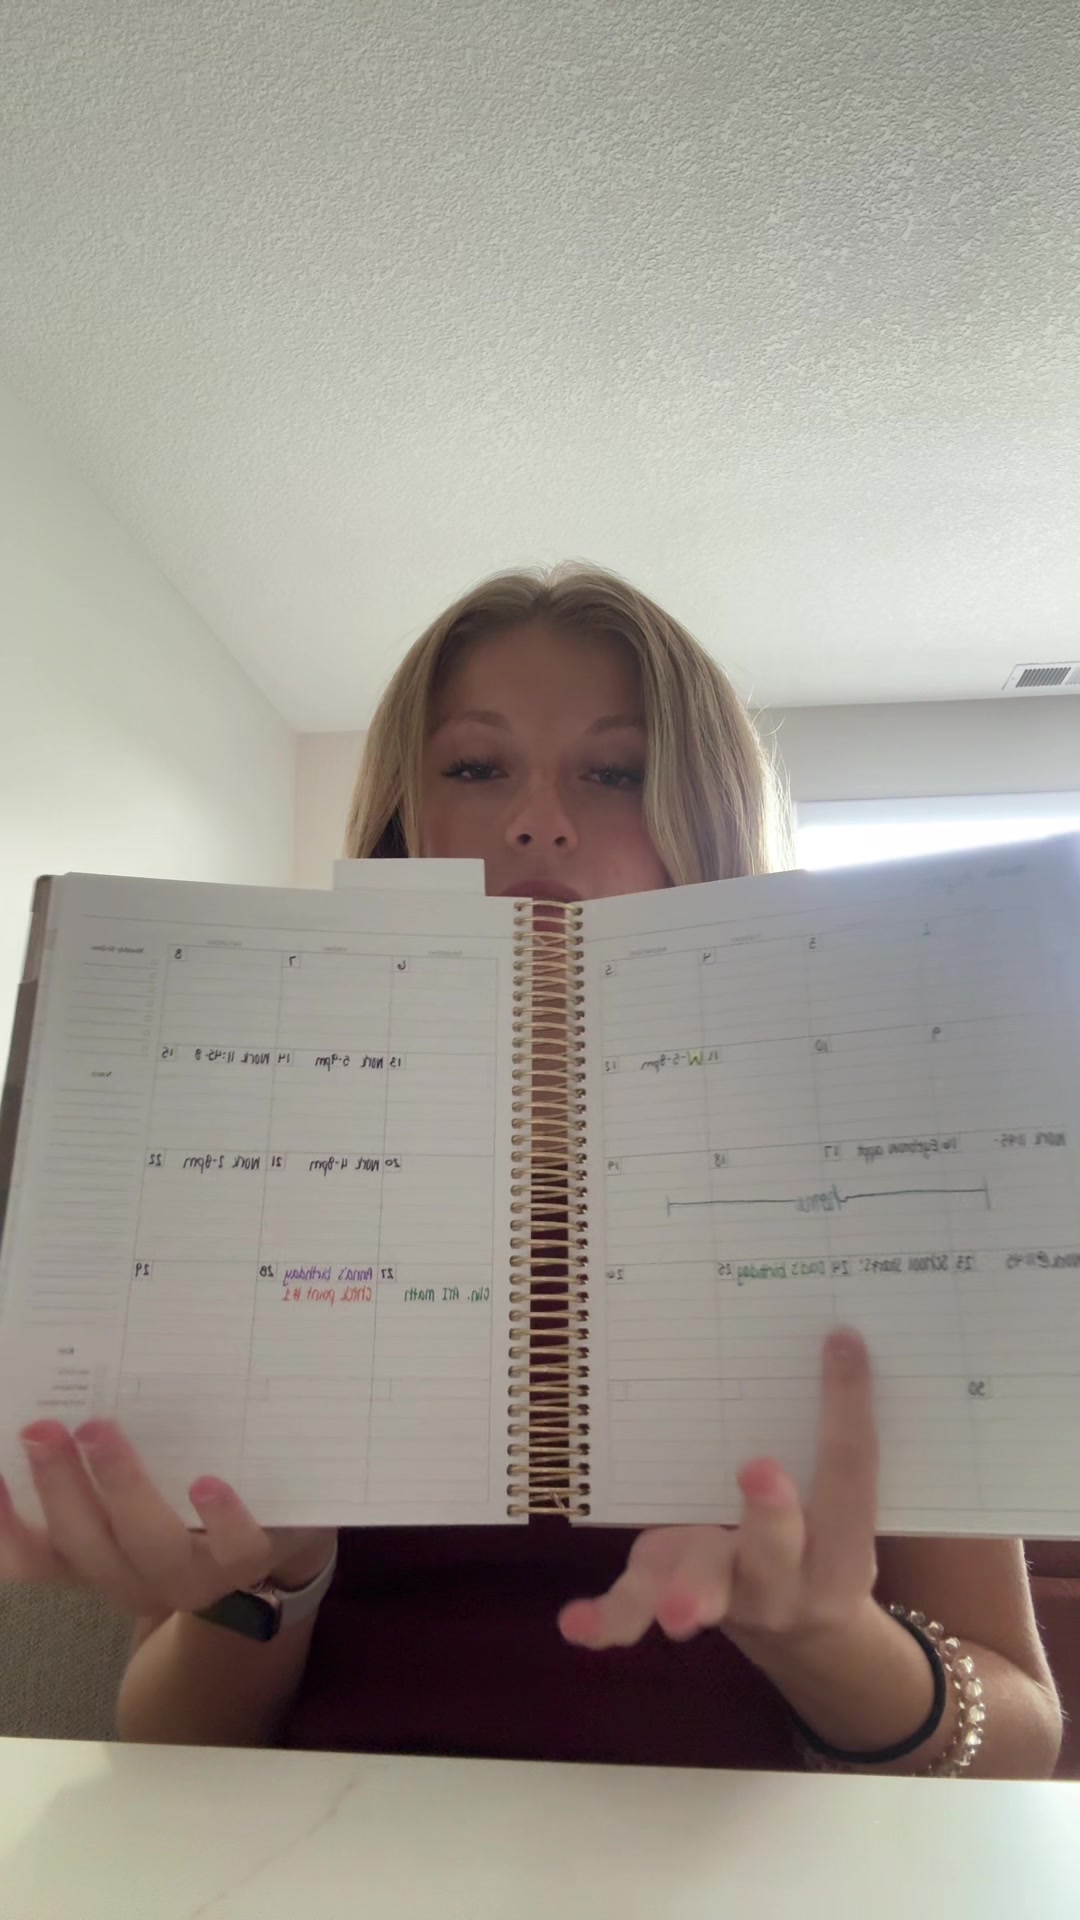 2 3 4 5
WEDNESDAY
9 10 11 W-5-8pm 12
Work 11:45- 16 Eyebrow appt 17 18 19
Home
23 School Starts! 24 Dad's birthday 25 26
30
THURSDAY FRIDAY SATURDAY
6 7 8
13 Work 5-9pm 14 Work 11:45-8 15
20 Work 4-8pm 21 Work 2-8pm 22
27 Anna's birthday 28 29
Clin. ATI math Check point #1
Notes